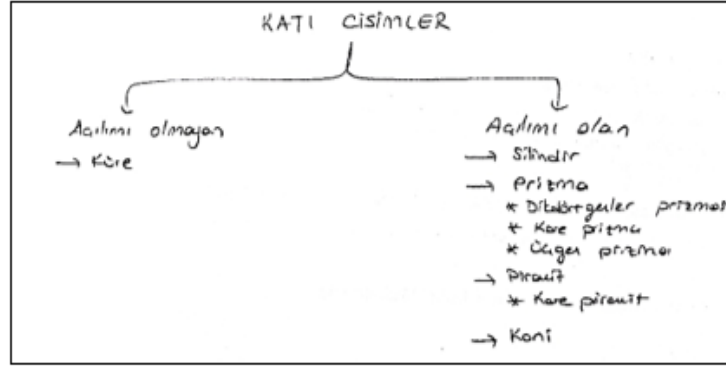 KATI CİSİMLER
Açılımı olmayan
→ Küre
Açılımı olan
→ Silindir
→ Prizma
* Dikdörtgenler prizması
* Kare prizma
* Üçgen prizma
→ Piramit
* Kare piramit
→ Koni